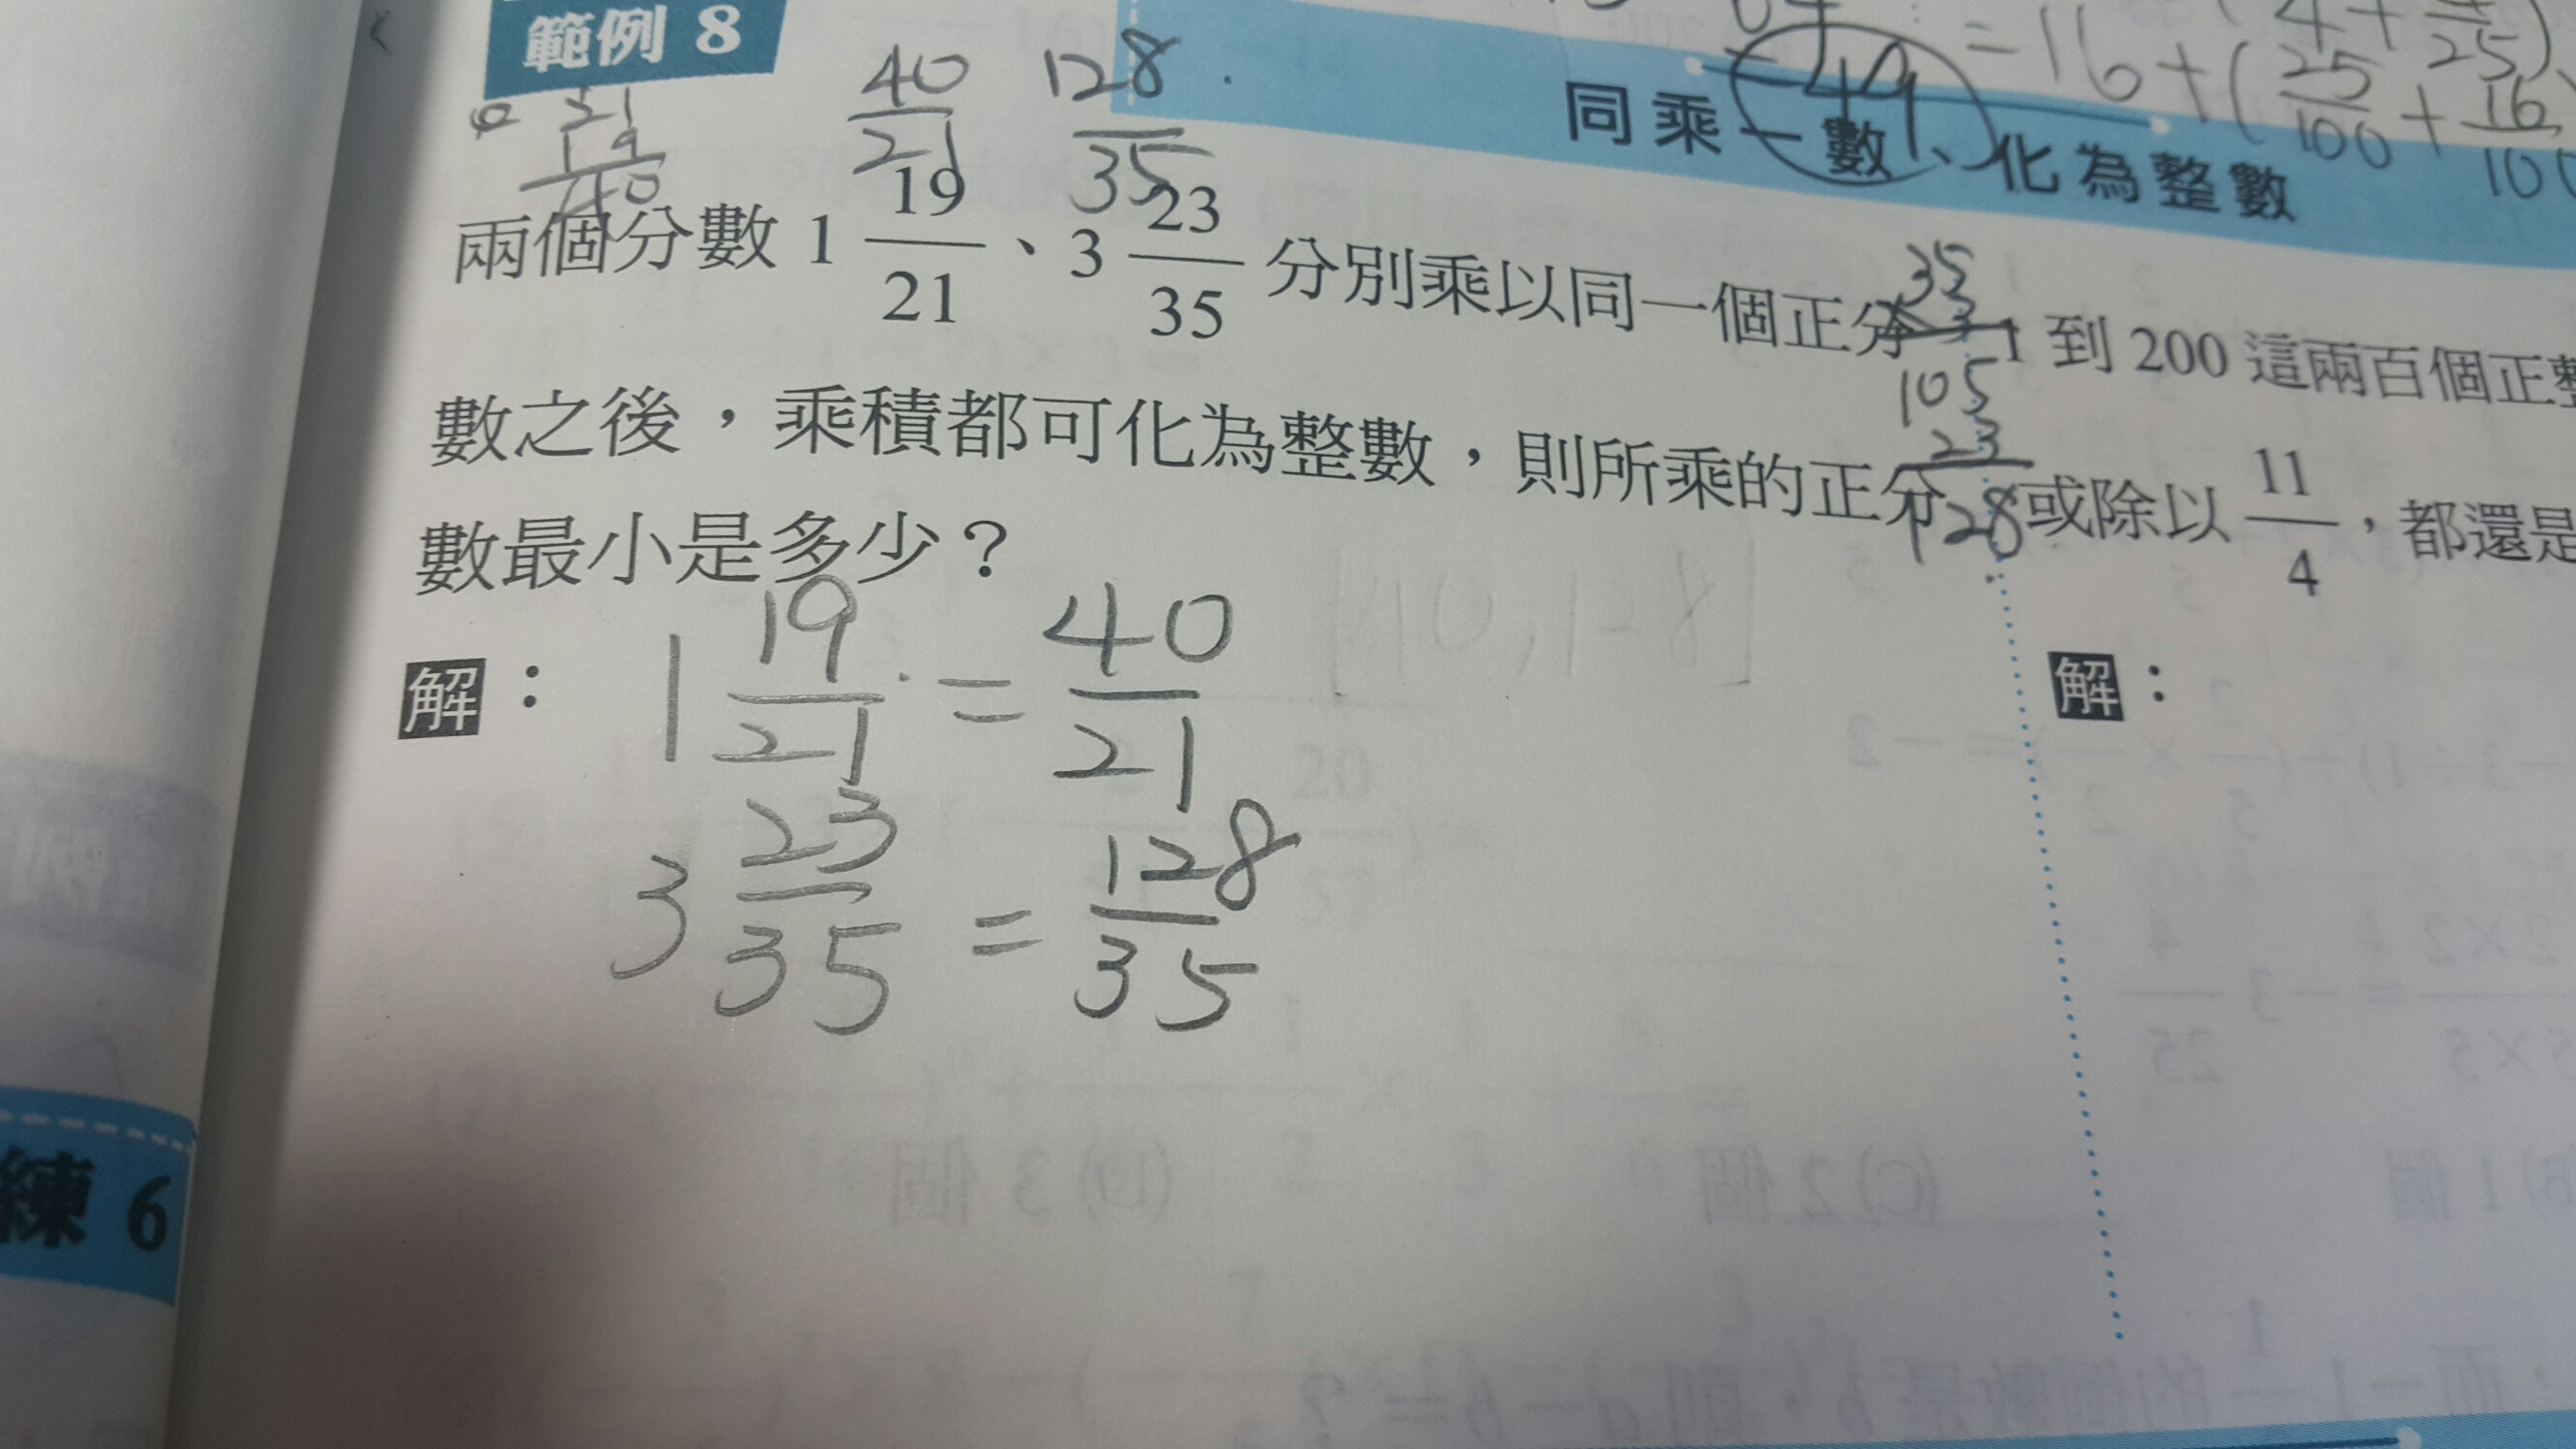 範例 8
40/21 128/35
= 16 + (25/100 + 16/10
同乘一數、化為整數
21
19
40
兩個分數 1 19/21、3 23/35 分別乘以同一個正分
數之後，乘積都可化為整數，則所乘的正分
數最小是多少？
35
3
105
23
128
1 到 200 這兩百個正整
或除以 11/4，都還是
解：
1 19/21 = 40/21
3 23/35 = 128/35
解：
練 6